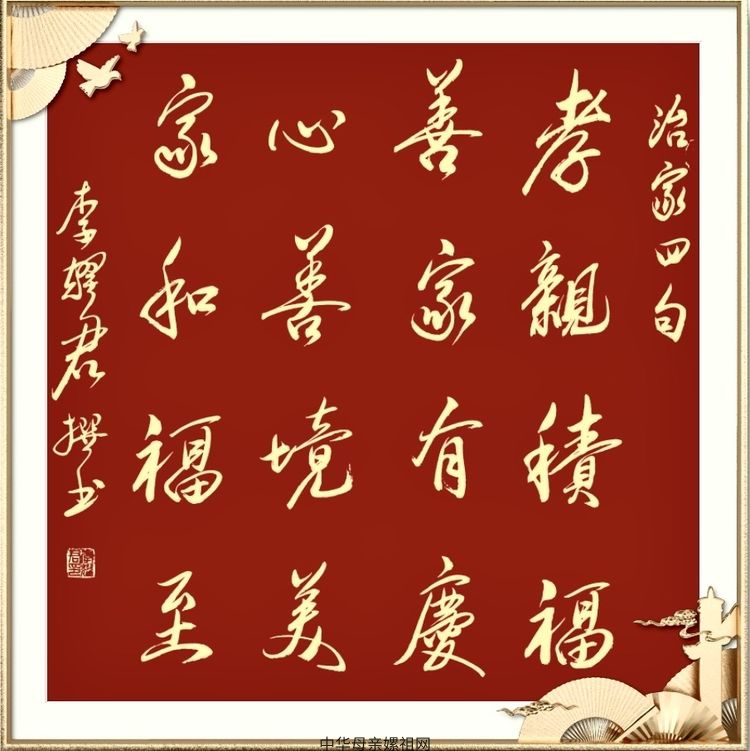 治家四句
孝親積福
善家有慶
心善境美
家和福至
李耀君撰书
中华母亲嫘祖网